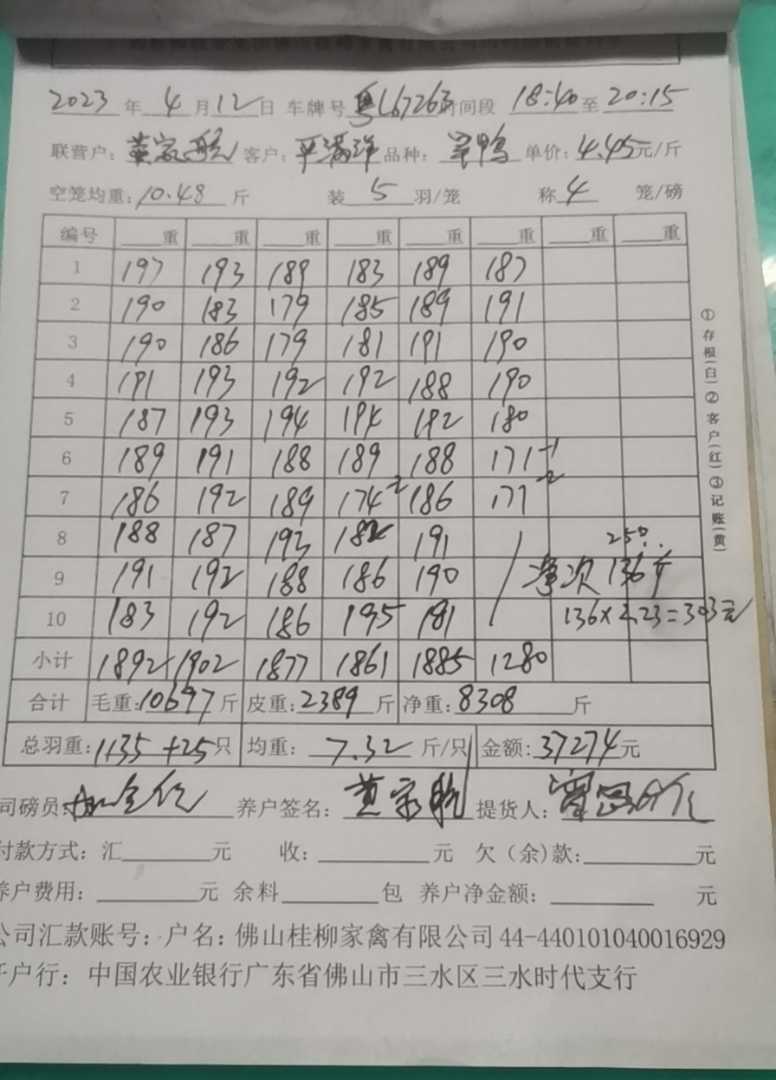 2023年4月12日 车牌号粤L67263时间段 18:40至20:15
联营户:黄家航 客户:平满洋 品种: 单价:4.45元/斤
空笼均重:10.48斤 装5羽/笼 称4笼/磅
编号 重 重 重 重 重 重 重 重
1 197 193 189 183 189 187
2 190 183 179 185 189 191
3 190 186 179 181 191 190
4 191 193 192 192 188 190
5 187 193 194 194 192 180
6 189 191 188 189 188 171-1
7 186 192 189 174-2 186 177-2
8 188 187 193 182 191 25只
9 191 192 188 186 190 净次136斤
10 183 192 186 195 181 136×2.23=303元
小计 1892 1902 1877 1861 1885 1280
合计 毛重:10697斤 皮重:2389斤 净重:8308斤
总羽重:1135+25只 均重:7.32斤/只 金额:37274元
司磅员: 养户签名:黄家航 提货人:
付款方式:汇 元 收: 元 欠(余)款: 元
养户费用: 元 余料 包 养户净金额: 元
公司汇款账号:户名:佛山桂柳家禽有限公司 44-440101040016929
开户行:中国农业银行广东省佛山市三水区三水时代支行
①存根(白)②客户(红)③记账(黄)